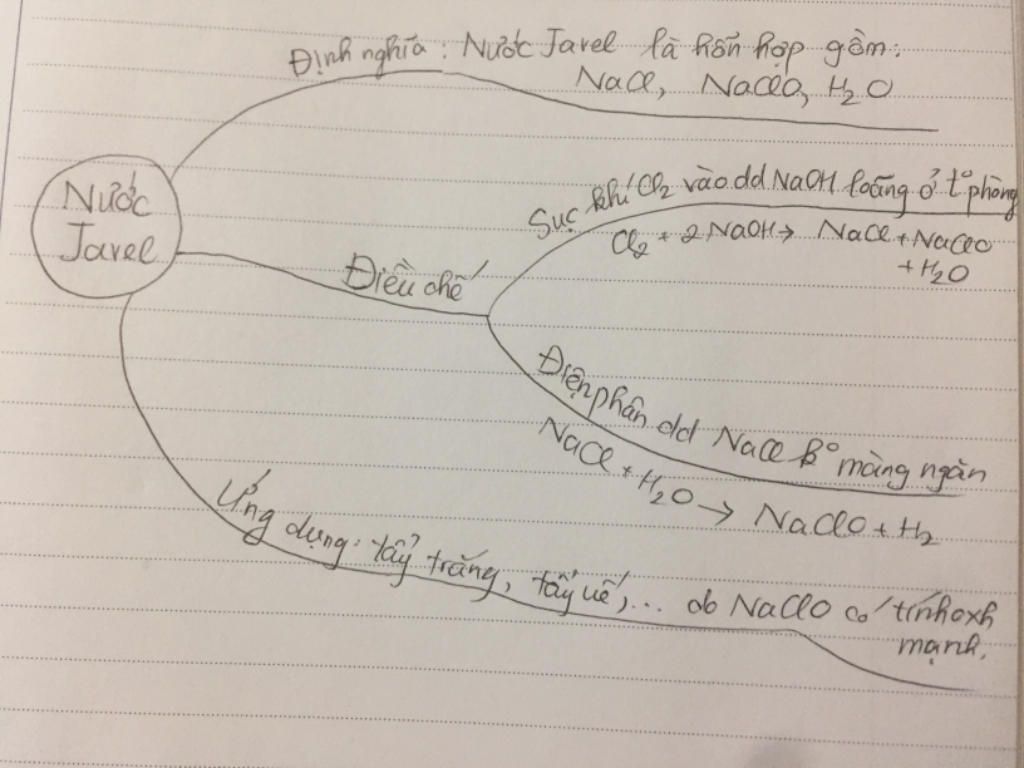 Định nghĩa: Nước Javel là hỗn hợp gồm:
NaCl, NaClO, H2O
Nước
Javel
Điều chế
Sục khí Cl2 vào dd NaOH loãng ở t° phòng
Cl2 + 2NaOH → NaCl + NaClO
+ H2O
Điện phân dd NaCl k° màng ngăn
NaCl + H2O → NaClO + H2
Ứng dụng: tẩy trắng, tẩy uế,... do NaClO có tính oxh
mạnh.